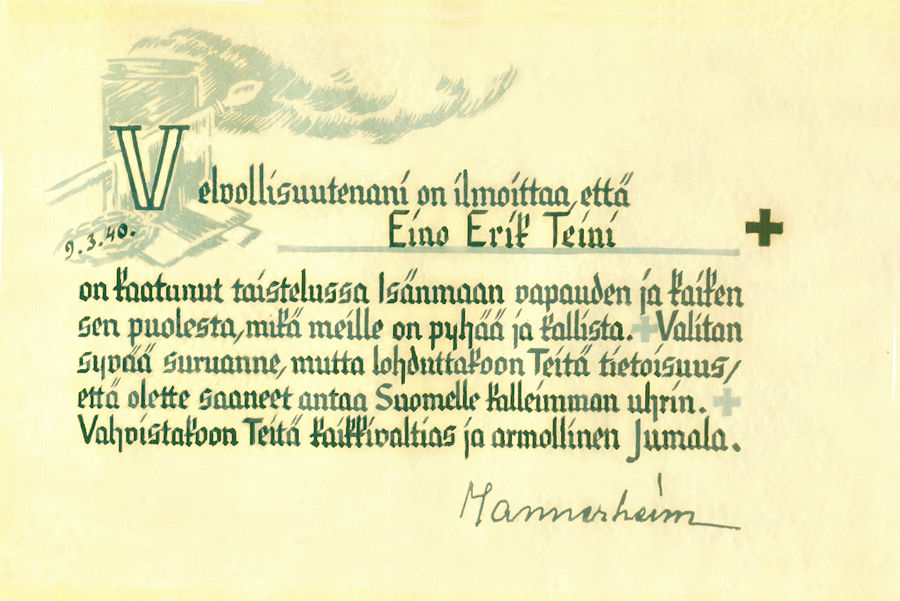 Velvollisuutenani on ilmoittaa, että
Eino Erik Teini
9.3.40.
on kaatunut taistelussa Isänmaan vapauden ja kaiken
sen puolesta, mikä meille on pyhää ja kallista. Valitan
syvää suruanne, mutta lohduttakoon Teitä tietoisuus,
että olette saaneet antaa Suomelle kalleimman uhrin.
Vahvistakoon Teitä kaikkivaltias ja armollinen Jumala.
Mannerheim